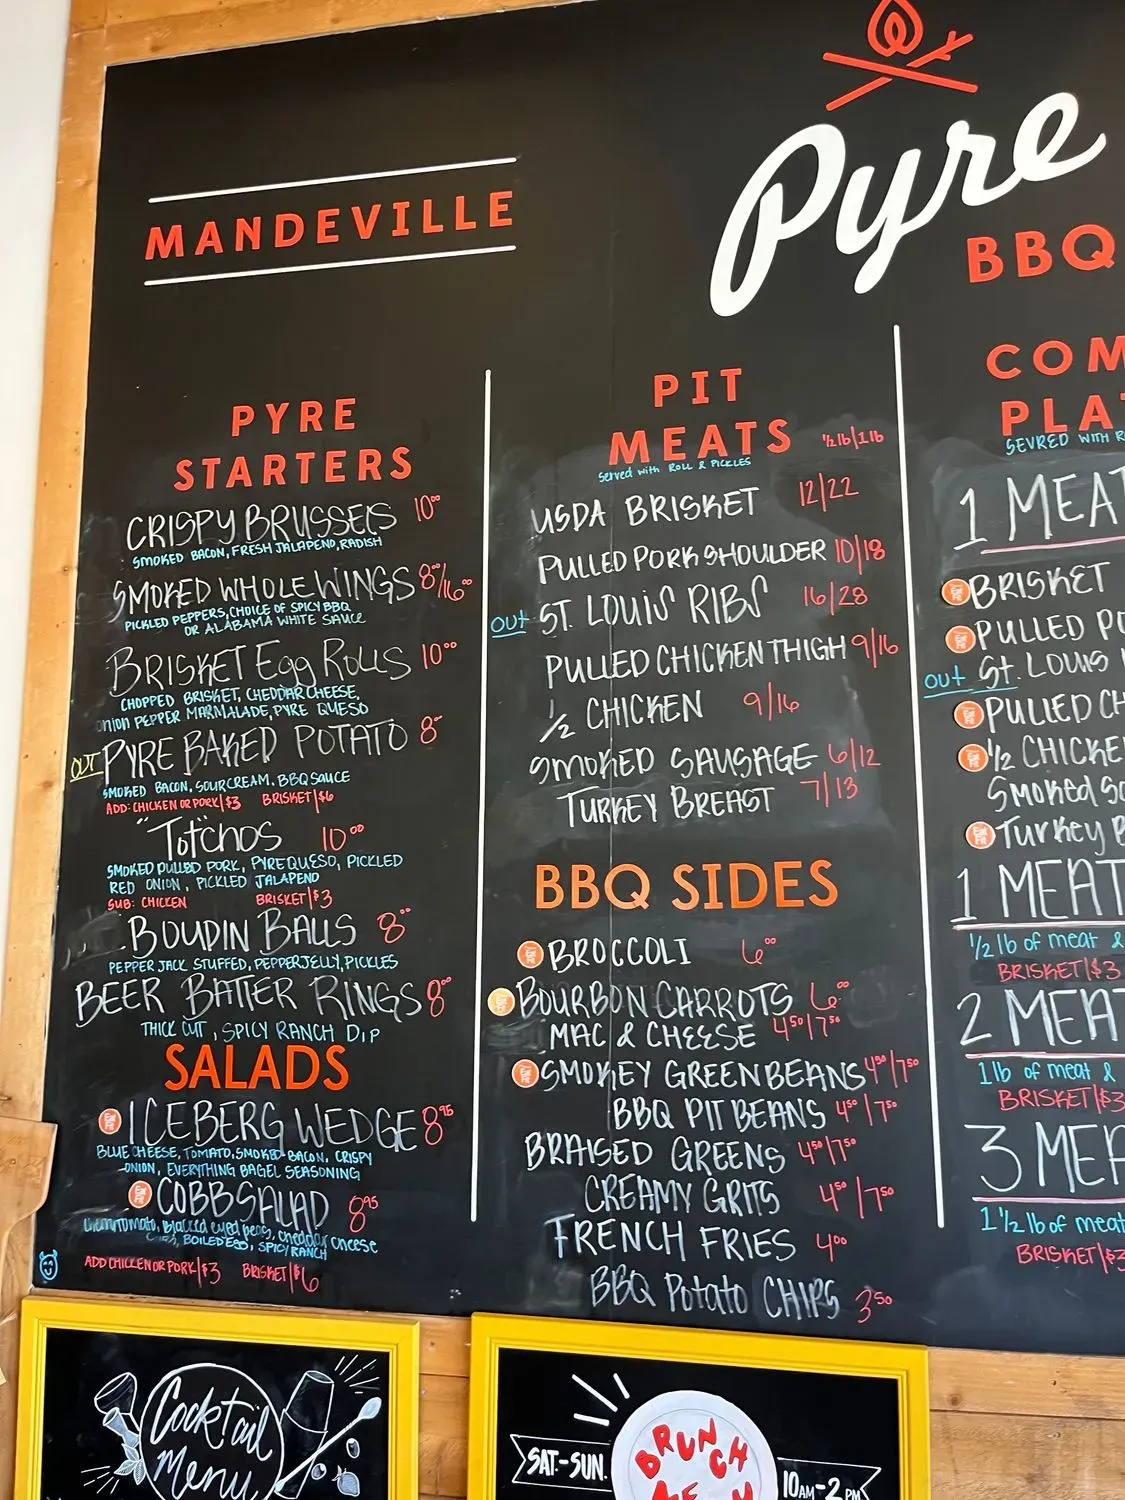 MANDEVILLE
Pyre
BBQ
PYRE
STARTERS
CRISPY BRUSSELS 10⁰⁰
SMOKED BACON, FRESH JALAPENO, RADISH
SMOKED WHOLE WINGS 8⁰⁰/16⁰⁰
PICKLED PEPPERS, CHOICE OF SPICY BBQ
OR ALABAMA WHITE SAUCE
BRISKET Egg ROLLS 10⁰⁰
CHOPPED BRISKET, CHEDDAR CHEESE,
ONION PEPPER MARMALADE, PYRE QUESO
OUT PYRE BAKED POTATO 8
SMOKED BACON, SOUR CREAM, BBQ SAUCE
ADD: CHICKEN OR PORK|$3 BRISKET|$6
"TOT"CHOS 10⁰⁰
SMOKED PULLED PORK, PYRE QUESO, PICKLED
RED ONION, PICKLED JALAPENO
SUB: CHICKEN BRISKET|$3
BOUDIN BALLS 8⁰⁰
PEPPER JACK STUFFED, PEPPER JELLY, PICKLES
BEER BATTER RINGS 8⁰⁰
THICK CUT, SPICY RANCH DIP
SALADS
Eat Fit ICEBERG WEDGE 8⁹⁵
BLUE CHEESE, TOMATO, SMOKED BACON, CRISPY
ONION, EVERYTHING BAGEL SEASONING
Eat Fit COBB SALAD 8⁹⁵
cherry tomato, blacked eyed peas, cheddar cheese
BOILED EGG, SPICY RANCH
ADD CHICKEN OR PORK|$3 BRISKET|$6
PIT
MEATS ½lb|1lb
Served with ROLL & PICKLES
USDA BRISKET 12/22
PULLED PORK SHOULDER 10/18
OUT ST. LOUIS RIBS 16/28
PULLED CHICKEN THIGH 9/16
½ CHICKEN 9/16
SMOKED SAUSAGE 6/12
TURKEY BREAST 7/13
BBQ SIDES
Eat Fit BROCCOLI 6⁰⁰
Eat Fit BOURBON CARROTS 6⁰⁰
MAC & CHEESE 4⁵⁰/7⁵⁰
Eat Fit SMOKEY GREEN BEANS 4⁵⁰/7⁵⁰
BBQ PIT BEANS 4⁵⁰/7⁵⁰
BRAISED GREENS 4⁵⁰/7⁵⁰
CREAMY GRITS 4⁵⁰/7⁵⁰
FRENCH FRIES 4⁰⁰
BBQ POTATO CHIPS 3⁵⁰
COM
PLA
SEVRED WITH R
1 MEAT
Eat Fit BRISKET
Eat Fit PULLED PO
OUT St. LOUIS
Eat Fit PULLED CH
Eat Fit ½ CHICKE
Smoked Sa
Eat Fit Turkey B
1 MEAT
½ lb of meat &
BRISKET|$3
2 MEA
1lb of meat &
BRISKET|$3
3 MEA
1½ lb of meat
BRISKET|$3
Cocktail
Menu
SAT.-SUN.
BRUNCH
10AM-2PM